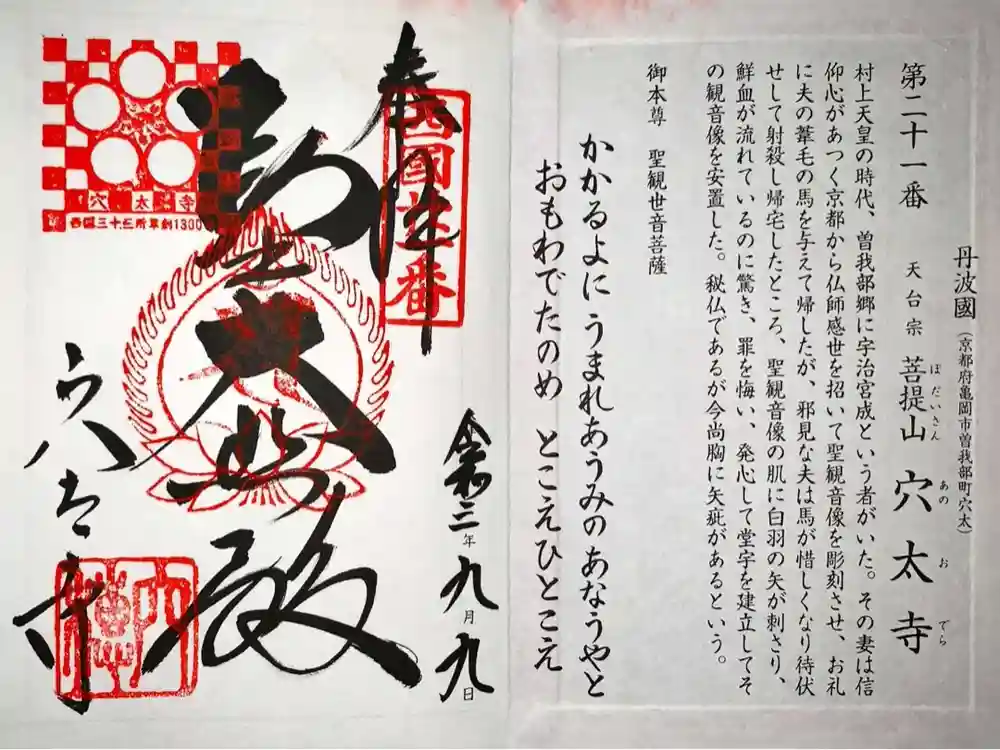 丹波國(京都府亀岡市曽我部町穴太)
第二十一番 天台宗 菩提山 穴太寺
ぼだいさん あのおでら
村上天皇の時代、曽我部郷に宇治宮成という者がいた。その妻は信
仰心があつく京都から仏師感世を招いて聖観音像を彫刻させ、お礼
に夫の葦毛の馬を与えて帰したが、邪見な夫は馬が惜しくなり待伏
せして射殺し帰宅したところ、聖観音像の肌に白羽の矢が刺さり、
鮮血が流れているのに驚き、罪を悔い、発心して堂宇を建立してそ
の観音像を安置した。秘仏であるが今尚胸に矢疵があるという。
御本尊 聖観世音菩薩
かかるよに うまれあうみの あなうやと
おもわでたのめ とこえひとこえ
奉拝
西國廿一番
令和三年九月九日
大悲殿
穴太寺
穴太寺
西国三十三所草創1300